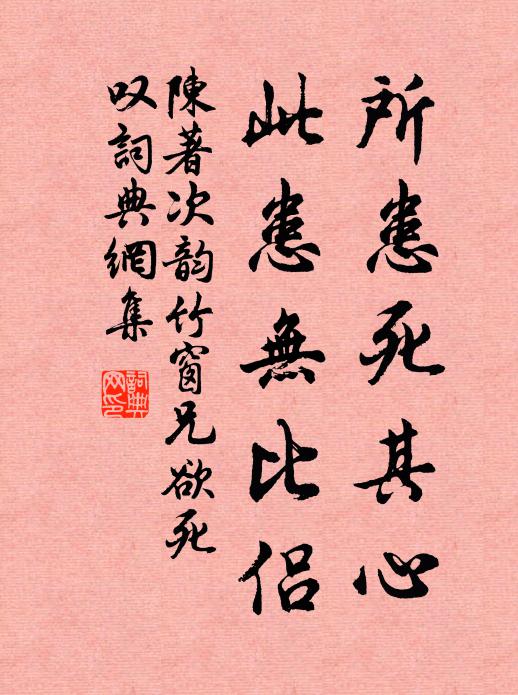 所患死其心
此患無比侶
陳著次韵竹窗兄欲死
叹詞典網集
詞典网印